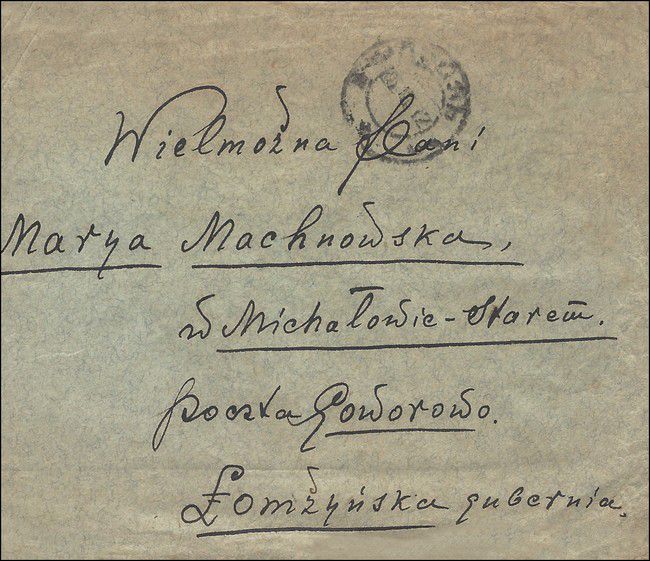 Wielmożna Pani
Marya Machnowska,
w Michałowie-Starem.
poczta Goworowo.
Łomżyńska gubernia.